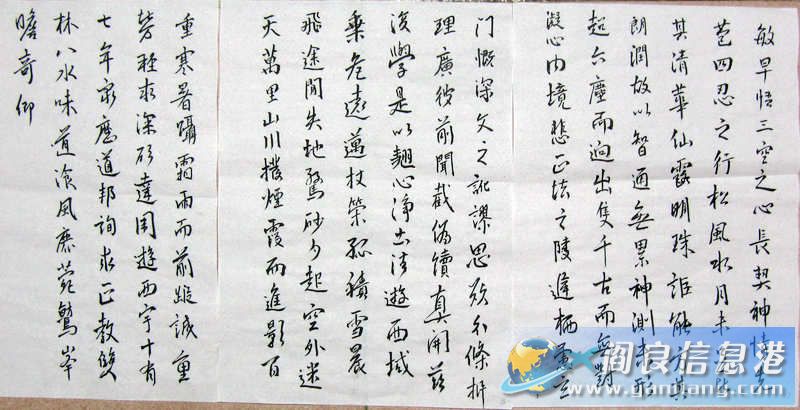 敏早悟三空之心長契神情先
苞四忍之行松風水月未足比
其清華仙露明珠詎能方其
朗潤故以智通無累神測未形
超六塵而迥出隻千古而無對
凝心內境悲正法之陵遲栖慮玄
门慨深文之訛謬思欲分條析
理廣彼前聞截偽續真開茲
後學是以翹心淨土法遊西域
乗危遠邁杖策孤積雪晨
飛途閒失地驚砂夕起空外迷
天萬里山川撥煙霞而進影百
重寒暑躡霜雨而前蹤誠重
勞輕求深欲達周遊西宇十有
七年窮歷道邦詢求正教雙
林八水味道湌風鹿菀鷲峯
瞻奇仰
阎良信息港
www.yanliang.com